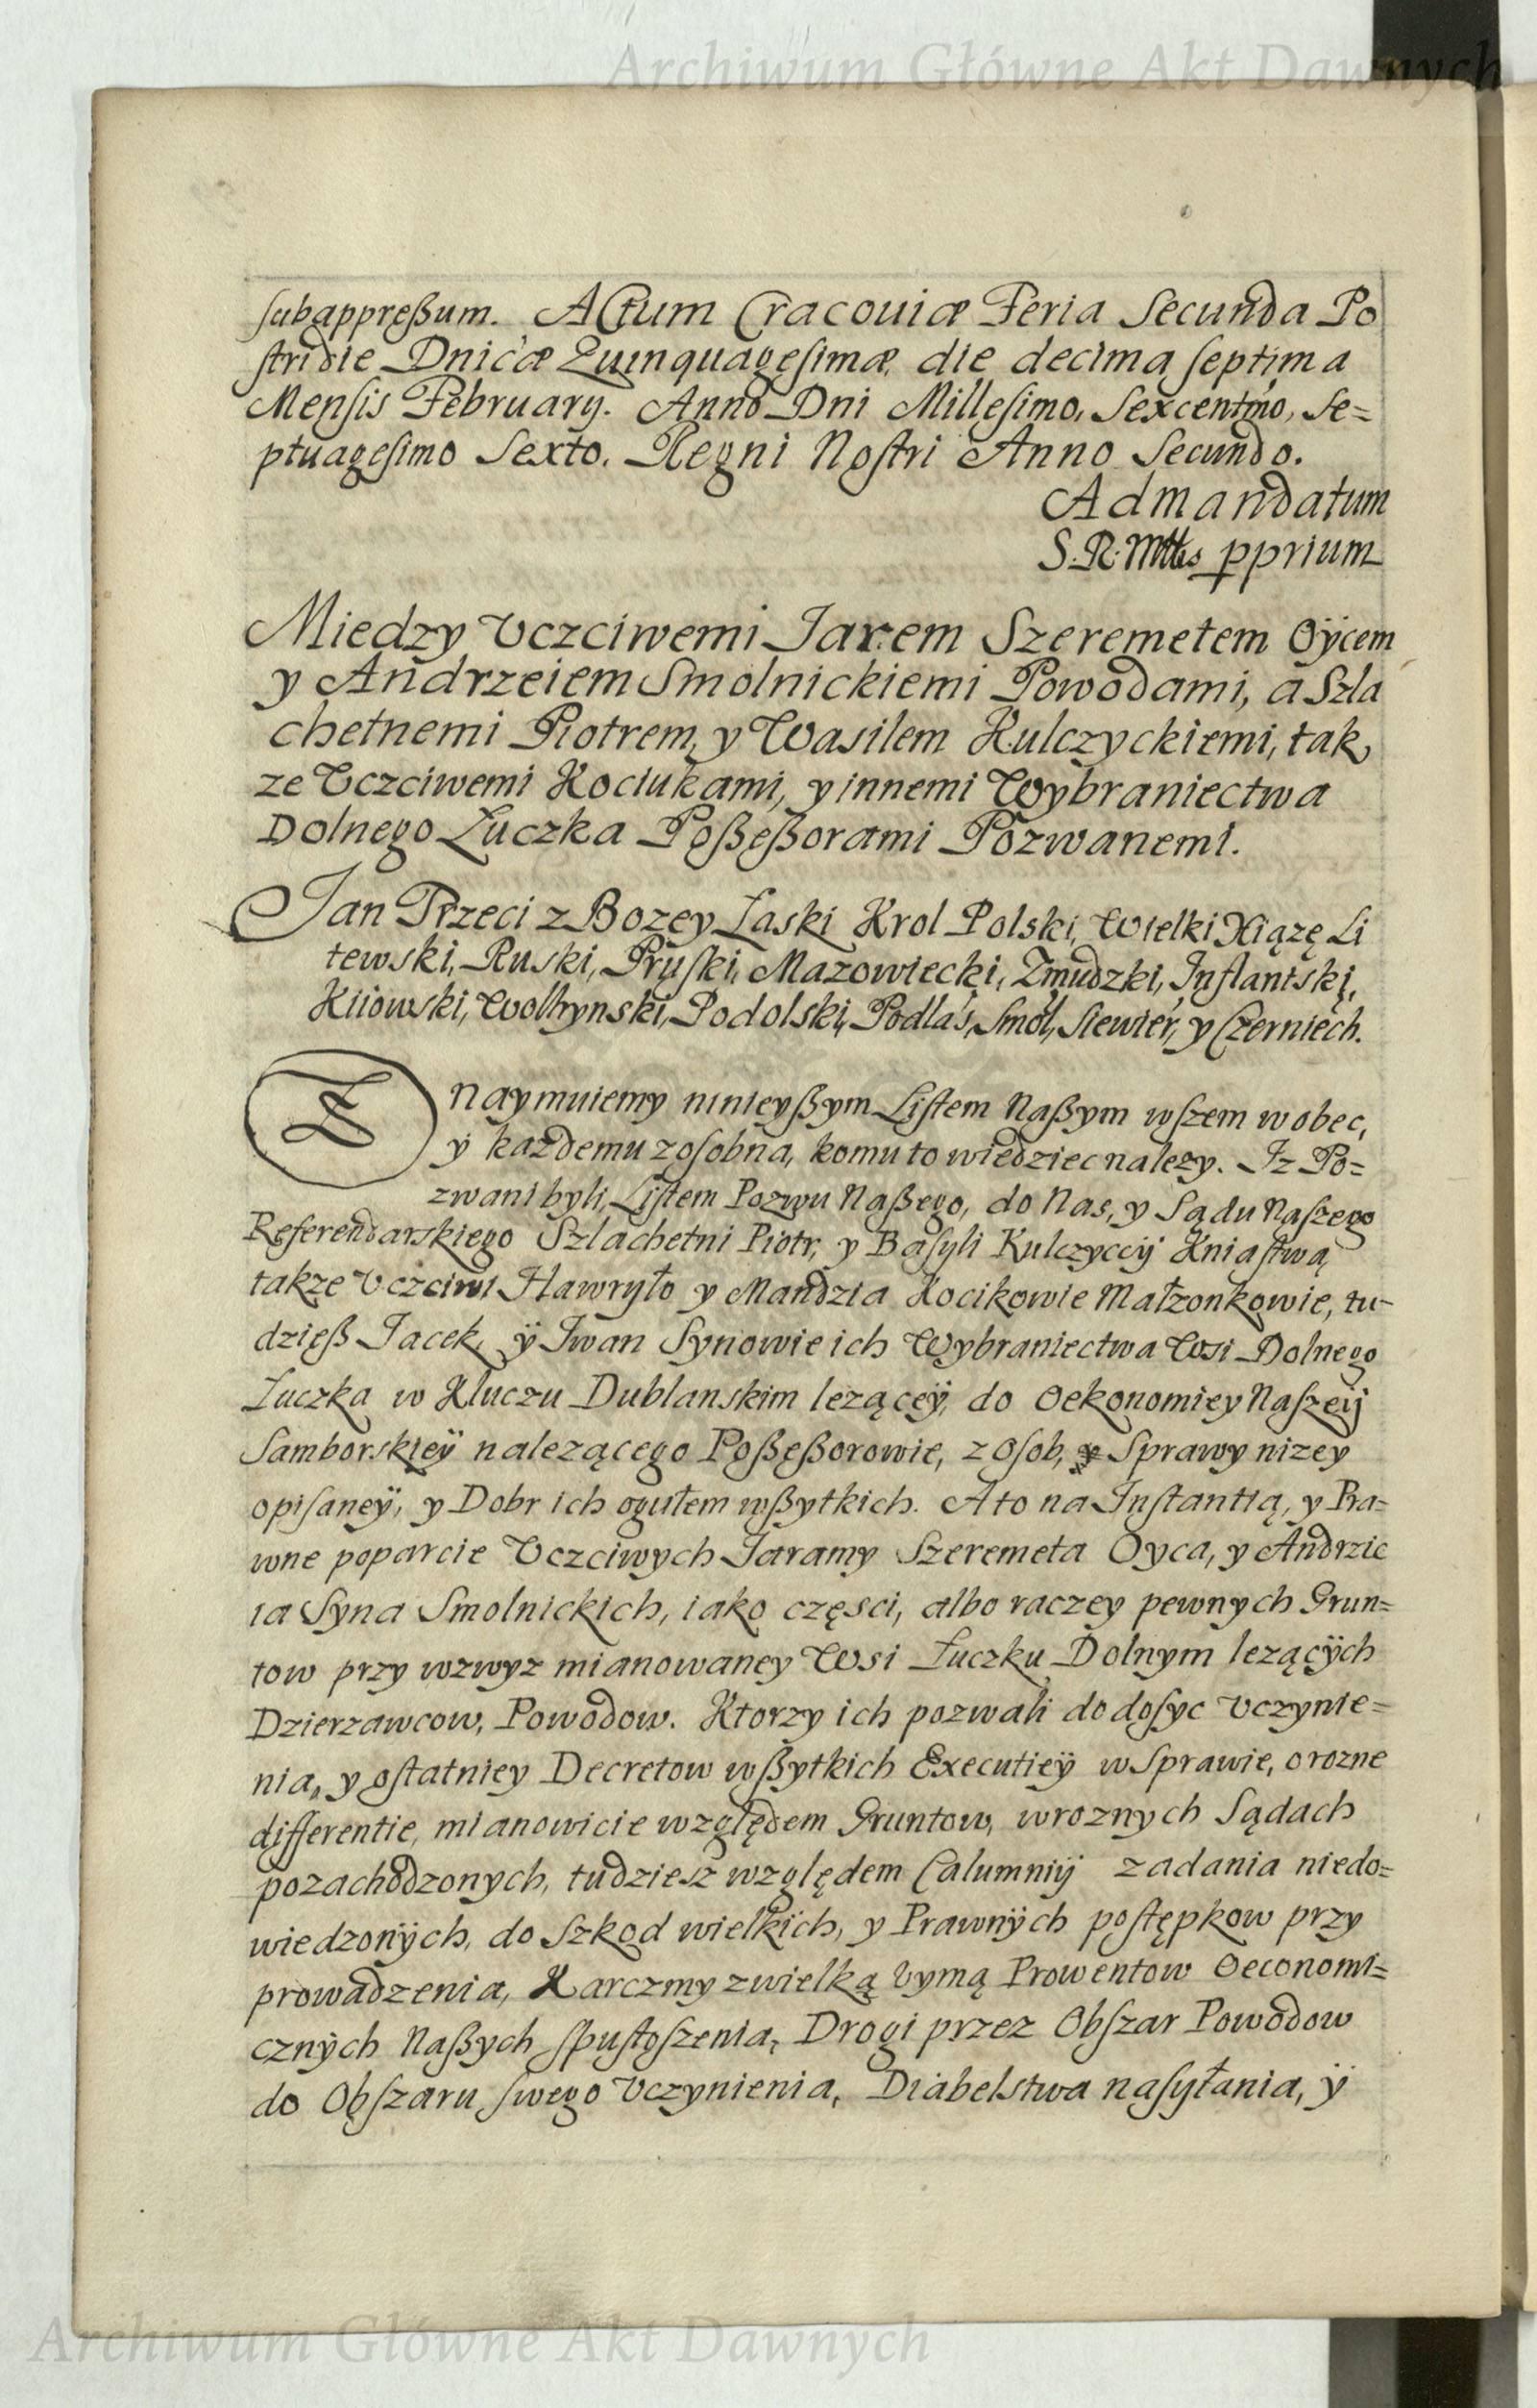 Archiwum Główne Akt Dawnych
subappreßum. Actum Cracouiæ Feria Secunda Po
stridie Dnicæ Quinquagesimæ, die decima septima
Mensis February. Anno Dni Millesimo, Sexcentmo, Se=
ptuagesimo Sexto. Regni Nostri Anno Secundo.
Ad mandatum
S. R. Mttis pprium
Miedzy Vczciwemi Jarem Szeremetem Oÿcem
y Andrzeiem Smolnickiemi Powodami, a Szla
chetnemi Piotrem, y Wasilem Kulczyckiemi, tak
ze Vczciwemi Kociukami, y innemi Wybraniectwa
Dolnego Łuczka Poßeßorami Pozwanemi.
Jan Trzeci z Bozey Łaski Krol Polski, Wielki Xiązę Li
tewski, Ruski, Pruski, Mazowiecki, Zmudzki, Inflantski,
Kiiowski, Wolhynski, Podolski, Podlas, Smol, Siewier, y Czerniech.
Znaymuiemy ninieyßym Listem Naßym wszem wobec,
y kazdemu zosobna, komu to wiedziec nalezy. Iz Po=
zwani byli, Listem Pozwu Naßego, do Nas, y Sądu Naszego
Referendarskiego Szlachetni Piotr, y Basyli Kulczyccÿ Kniastwa,
takze Vczciwi Hawryło y Mandzia Kocikowie Małzonkowie, tu-
dzięß Jacek, ÿ Iwan Synowie ich Wybraniectwa Wsi Dolnego
Łuczka w Kluczu Dublanskim lezącey, do Oekonomiey Naszeÿ
Samborskieÿ nalezącego Poßeßorowie, z Osob, y Sprawy nizey
opisaneÿ, y Dobr ich ogułem wßytkich. A to na Instantią, y Pra=
wne poparcie Vczciwych Jaramy Szeremeta Oyca, y Andrzie
ia Syna Smolnickich, iako częsci, albo raczey pewnych Grun=
tow przy wzwyz mianowaney Wsi Łuczku Dolnym lezącÿch
Dzierzawcow, Powodow. Ktorzy ich pozwali do dosyc Vczynie=
nia, y ostatniey Decretow wßytkich Executieÿ w Sprawie, o rozne
differentie, mianowicie względem Gruntow, w roznych Sądach
pozachodzonych, tudziesz względem Calumniÿ zadania niedo=
wiedzonÿch, do Szkod wielkich, y Prawnÿch postępkow przy
prowadzenia, Karczmy z wielką Vymą Prowentow Oeconomi=
cznÿch Naßych spustoszenia, Drogi przez Obszar Powodow
do Obszaru swego Vczynienia, Diabelstwa nasyłania, ÿ
Archiwum Główne Akt Dawnych